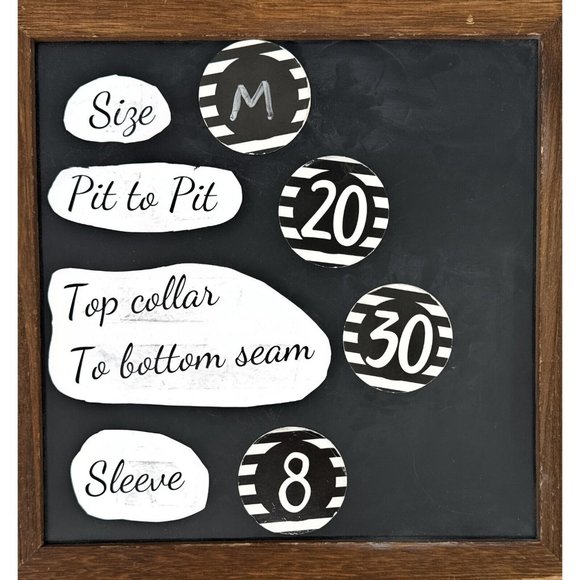 Size M
Pit to Pit 20
Top collar
To bottom seam 30
Sleeve 8